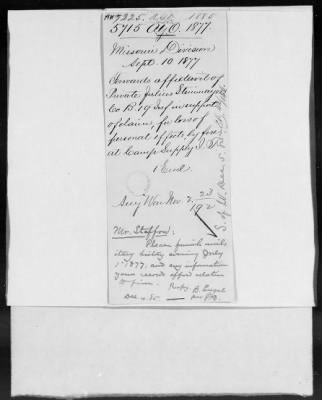 5715 AGO. 1877.
Missouri Division
Sept. 10 1877
Forwards affidavit of
Private Julius
Co B. 19 Inf in support
of claim, for loss of
personal effects, by fire
at Camp Supply I. T.
1 Encl
Nov. 2.
Mr. Stafford:
Please furnish mil-
itary history covering July
1st 1877, and any information
your records afford relative
to fire.
Dec 4. 85.